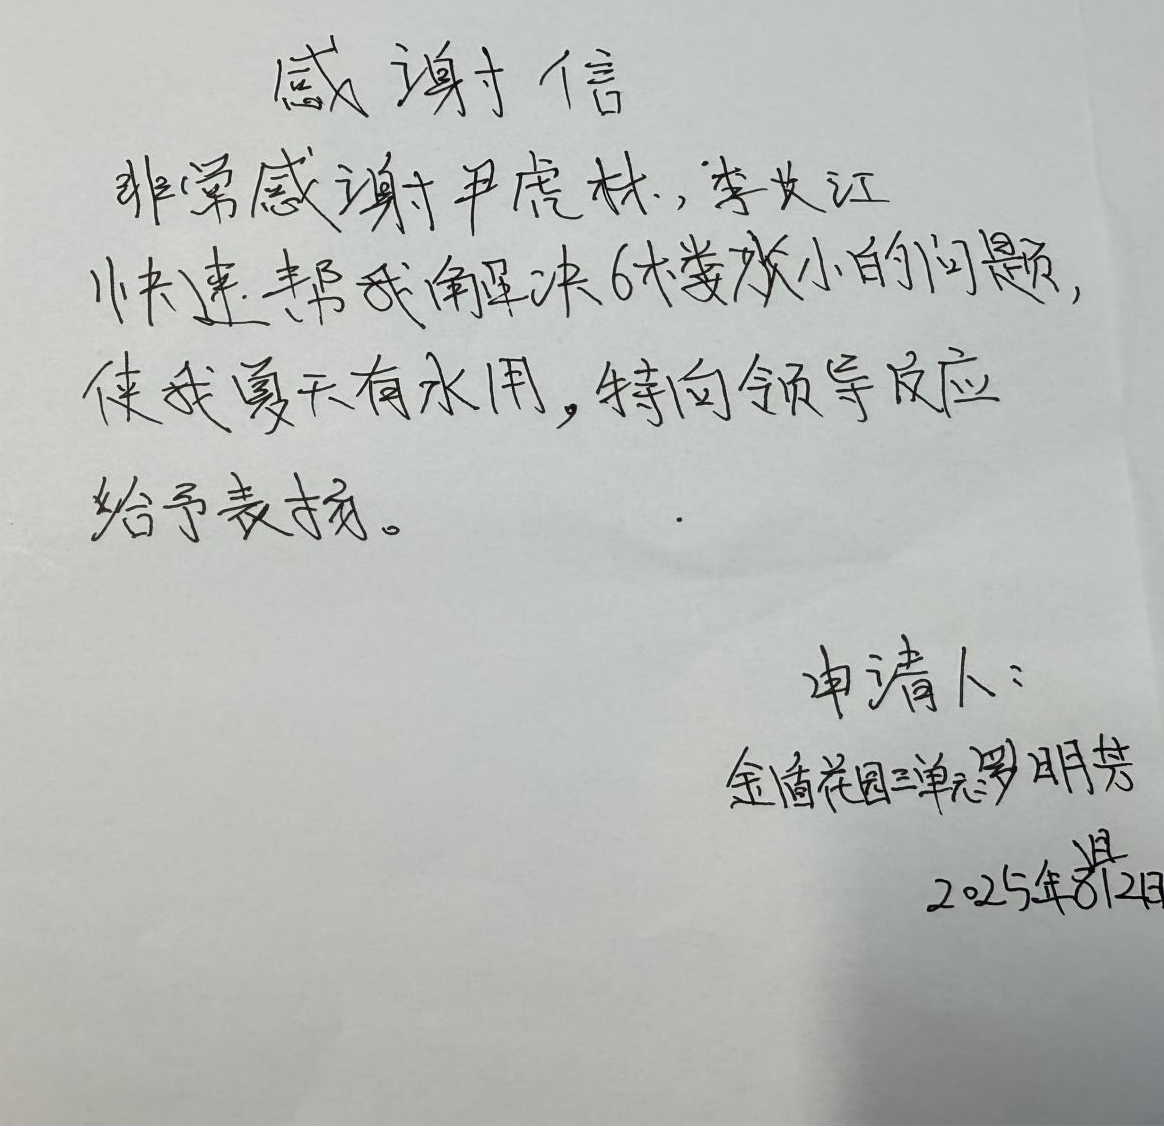 感谢信
非常感谢尹虎林,李文江
快速帮我解决6楼水小的问题,
使我夏天有水用。特向领导反应
给予表扬。
申请人:
金盾花园三单元罗明芳
2025年8月12日